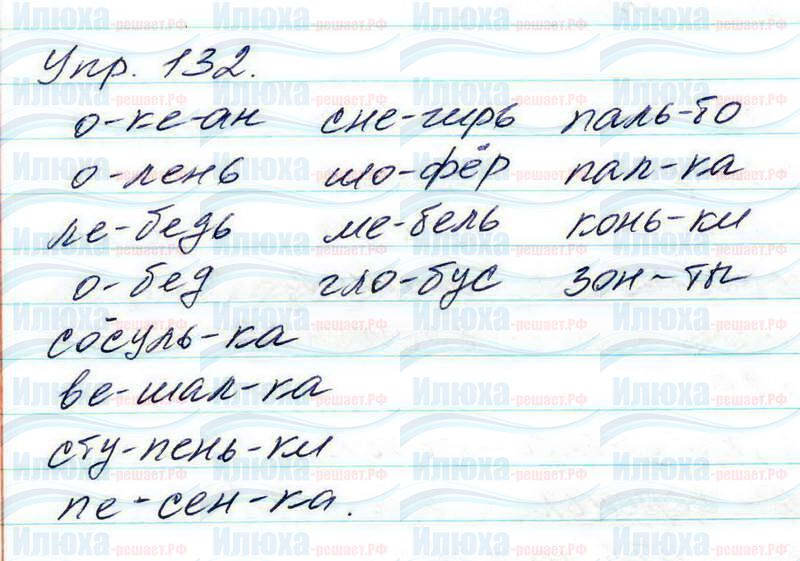 Упр. 132.
о-ке-ан сне-гирь паль-то
о-лень шо-фёр пал-ка
ле-бедь ме-бель конь-ки
о-бед гло-бус зон-ты
сосуль-ка
ве-шал-ка
сту-пень-ки
пе-сен-ка.